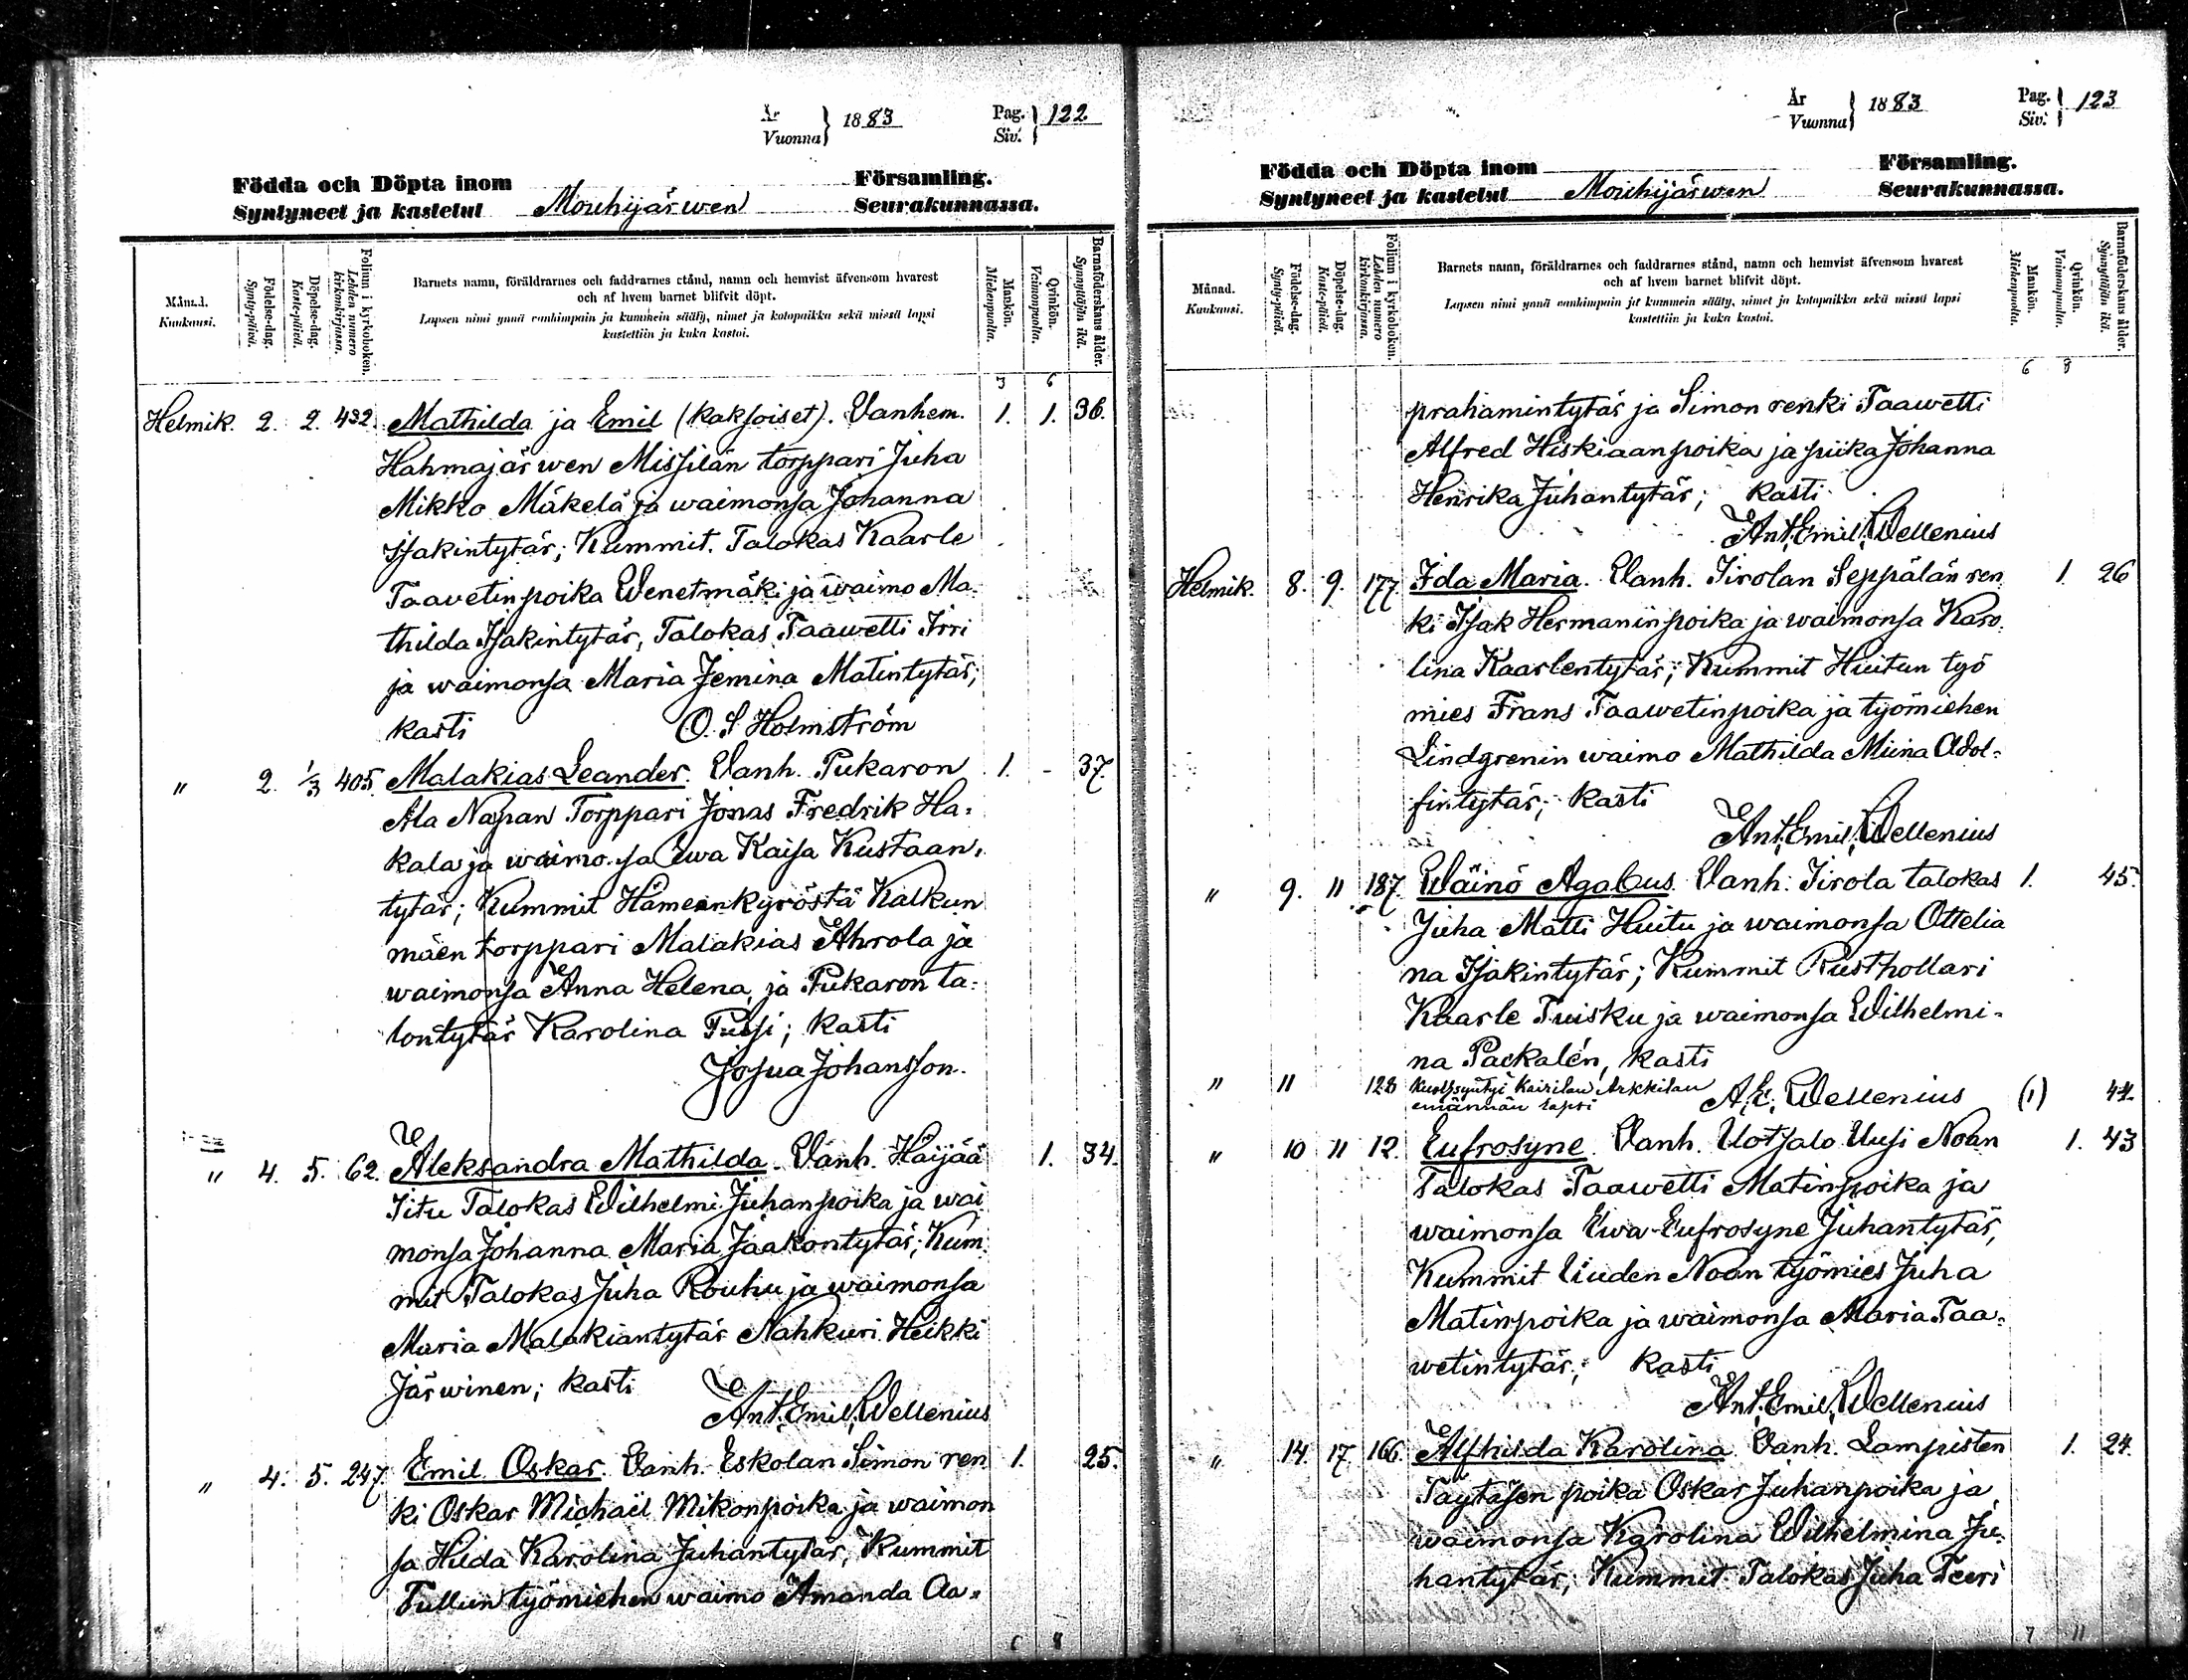 År
Vuonna } 1883 Pag.
Siv. } 122
Födda och Döpta inom Församling.
Syntyneet ja kastetut Mouhijärwen Seurakunnassa.
Månad.
Kuukausi.
Födelse-dag.
Synty-päivä.
Döpelse-dag.
Kaste-päivä.
Folium i kyrkoboken.
Lehden numero kirkonkirjassa.
Barnets namn, föräldrarnes och faddrarnes stånd, namn och hemvist äfvensom hvarest
och af hvem barnet blifvit döpt.
Lapsen nimi ynnä vanhimpain ja kummein sääty, nimet ja kotopaikka sekä missä lapsi
kastettiin ja kuka kastoi.
Mankön.
Miehenpuolta.
Qvinkön.
Vaimonpuolta.
Barnaföderskans ålder.
Synnyttäjän ikä.
3 6
Helmik. 2. 2. 432. Mathilda ja Emil (kaksoiset). Vanhem. 1. 1. 36.
Hahmajärwen Missilän torppari Juha
Mikko Mäkelä ja waimonsa Johanna
Isakintytär; Kummit. Talokas Kaarle
Taavetinpoika Wenetmäki ja waimo Ma-
thilda Isakintytär, Talokas Taawetti Irri
ja waimonsa Maria Jemina Matintytär;
kasti O. S Holmström
" 2. 1/3 405. Malakias Leander. Vanh. Pukaron 1. - 37.
Ala Napan Torppari Jonas Fredrik Ha-
kala ja waimonsa Ewa Kaisa Kustaan-
tytär; Kummit Hämeenkyröstä Kalkun
mäen torppari Malakias Ahrola ja
waimonsa Anna Helena, ja Pukaron ta-
lontytär Karolina Pussi; kasti
Josua Johansson.
" 4. 5. 62. Aleksandra Mathilda. Vanh. Häijää 1. 34.
Iitu Talokas Wilhelmi Juhanpoika ja wai
monsa Johanna Maria Jaakontytär; Kum-
mit Talokas Juha Rouhu ja waimonsa
Maria Malakiantytär Nahkuri Heikki
Järwinen; kasti
Ant. Emil. Wellenius
" 4. 5. 247. Emil Oskar. Vanh. Eskolan Simon ren 1. 25.
ki Oskar Michaël Mikonpoika ja waimon
sa Hilda Karolina Juhantytär, Kummit
Tulliin työmiehen waimo Amanda Aa-
6 8
År
Vuonna } 1883 Pag.
Siv. } 123
Födda och Döpta inom Församling.
Syntyneet ja kastetut Mouhijärwen Seurakunnassa.
Månad.
Kuukausi.
Födelse-dag.
Synty-päivä.
Döpelse-dag.
Kaste-päivä.
Folium i kyrkoboken.
Lehden numero kirkonkirjassa.
Barnets namn, föräldrarnes och faddrarnes stånd, namn och hemvist äfvensom hvarest
och af hvem barnet blifvit döpt.
Lapsen nimi ynnä vanhimpain ja kummein sääty, nimet ja kotopaikka sekä missä lapsi
kastettiin ja kuka kastoi.
Mankön.
Miehenpuolta.
Qvinkön.
Vaimonpuolta.
Barnaföderskans ålder.
Synnyttäjän ikä.
6 8
prahamintytär ja Simon renki Taawetti
Alfred Hiskiaanpoika ja piika Johanna
Henrika Juhantytär; kasti
Ant. Emil. Wellenius
Helmik. 8. 9. 177. Ida Maria. Vanh. Iirolan Seppälän ren 1. 26
ki Isak Hermaninpoika ja waimonsa Karo-
lina Kaarlentytär; Kummit Huitun työ
mies Frans Taawetinpoika ja työmiehen
Lindgrenin waimo Mathilda Miina Adol-
fintytär; kasti
Ant. Emil. Wellenius
" 9. 11 187. Wäinö Agabus. Vanh. Iirola talokas 1. 45.
Juha Matti Huitu ja waimonsa Ottelia
na Isakintytär; Kummit Rusthollari
Kaarle Tuisku ja waimonsa Wilhelmi-
na Packalén, kasti
" 11 128 Kuoll. syntyi Kairilan Arkkilan
emännän lapsi A. E. Wellenius (1) 44.
" 10 11 12. Eufrosyne. Vanh. Uotsalo Uusi Noan 1. 43
Talokas Taawetti Matinpoika ja
waimonsa Ewa Eufrosyne Juhantytär,
Kummit Uuden Noan työmies Juha
Matinpoika ja waimonsa Maria Taa-
wetintytär; kasti
Ant. Emil. Wellenius
" 14. 17. 166. Alfhilda Karolina. Vanh. Lampisten 1. 24.
Taytasen poika Oskar Juhanpoika ja
waimonsa Karolina Wilhelmina Ju-
hantytär; Kummit Talokas Juha Teeri
7 11